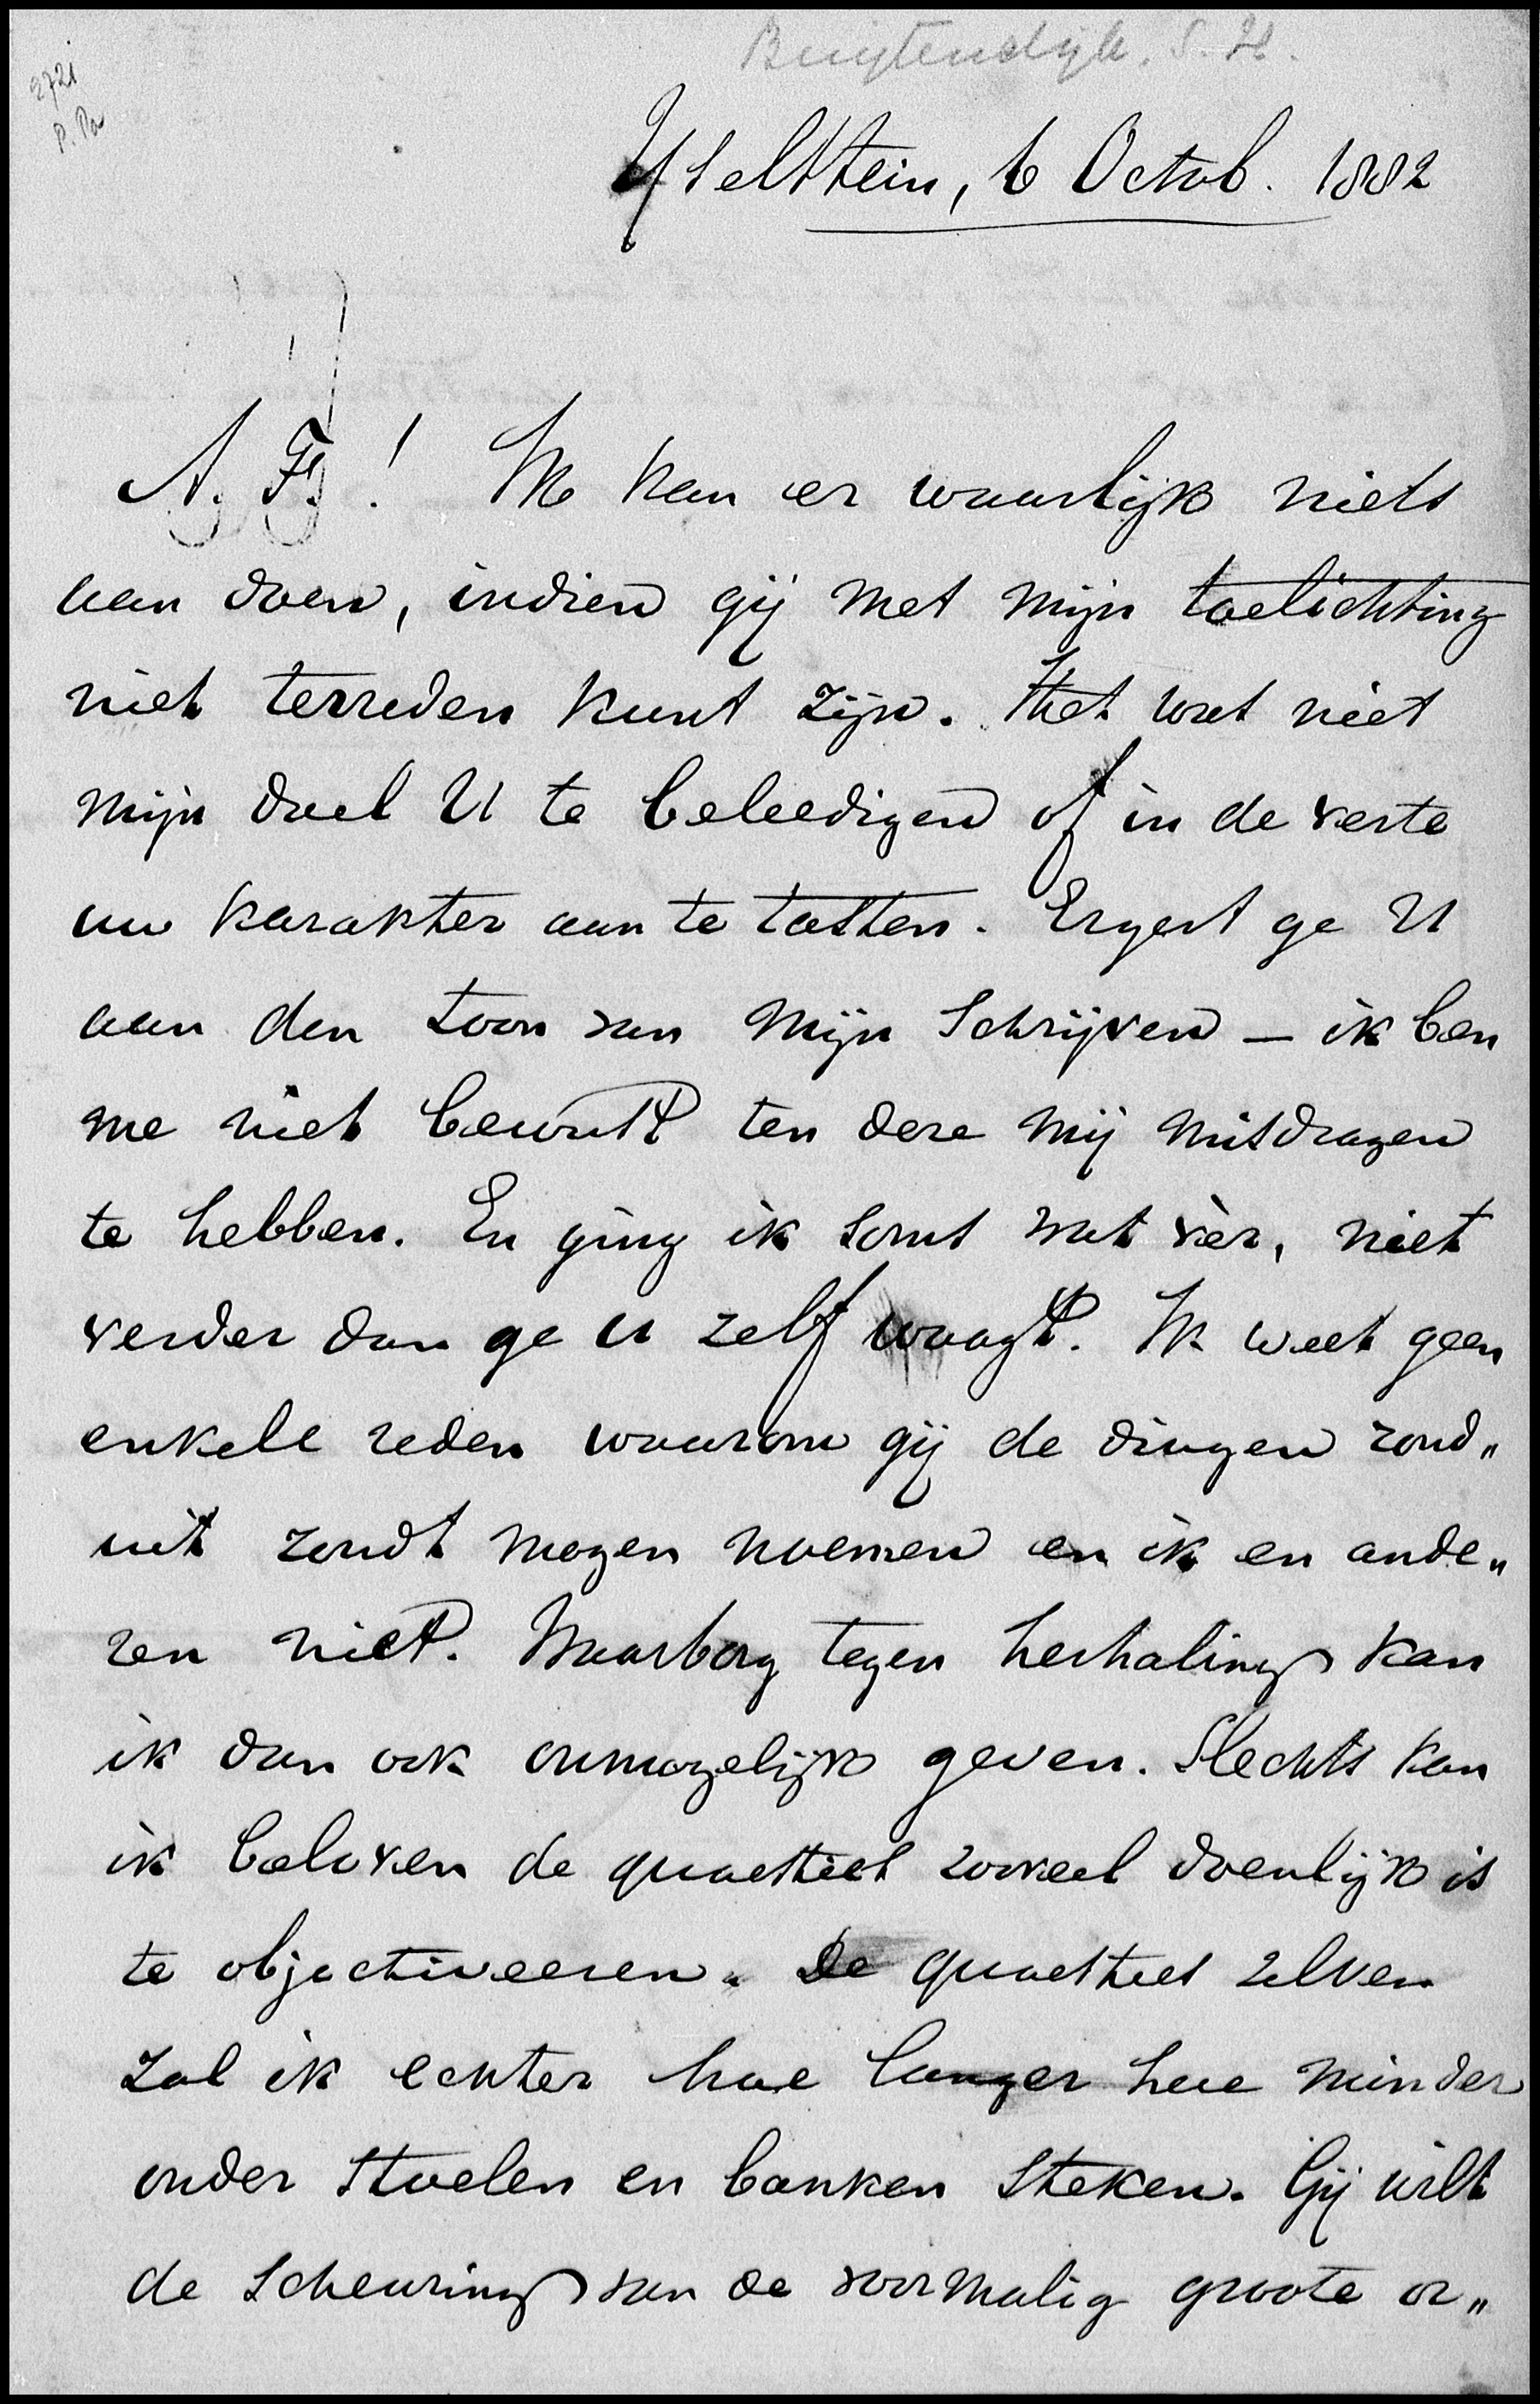 Buytendijk, S. H.
2721
P. Pa
IJselstein, 6 Octob. 1882
A. F.! Ik kan er waarlijk niets
aan doen, indien gij met mijn toelichting
niet tevreden kunt zijn. Het was niet
mijn doel U te beleedigen of in de verte
uw karakter aan te tasten. Ergert ge U
aan den toon van mijn schrijven — ik ben
me niet bewust ten deze mij misdragen
te hebben. En ging ik soms wat vèr, niet
verder dan ge u zelf waagt. Ik weet geen
enkele reden waarom gij de dingen rond„
uit zoudt mogen noemen en ik en ande„
ren niet. Waarborg tegen herhaling kan
ik dan ook onmogelijk geven. Slechts kan
ik beloven de quaesties zooveel doenlijk is
te objectiveeren. De quaesties zelven
zal ik echter hoe langer hoe minder
onder stoelen en banken steken. Gij wilt
de scheuring van de voormalig groote or„